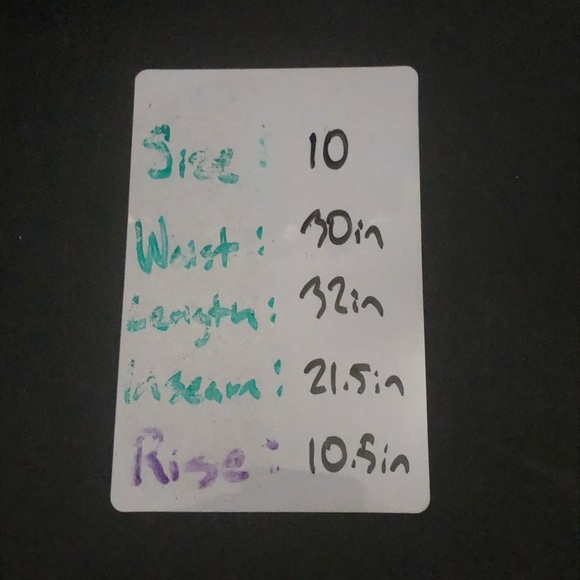 Size: 10
Waist: 30in
Length: 32in
Inseam: 21.5in
Rise: 10.5in